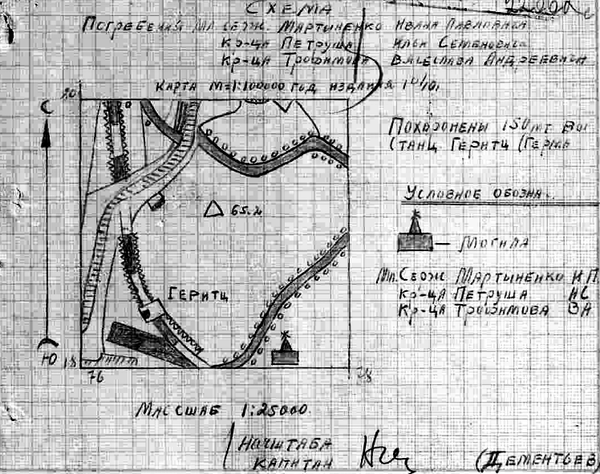 СХЕМА
Погребения Мл. Серж. Мартыненко Ивана Павловича
Кр-ца Петруша Ильи Семеновича
Кр-ца Трофимова Вячеслава Андреевича
Карта М=1:100000 год издания
20
С
Похоронены 150 мт
Станц. Геритц (Герма
Условное обозна.
65.2
— Могила
Мл. Серж Мартыненко И.П.
Кр-ца Петруша ИС
Кр-ца Трофимова ВА
Геритц
Ю 18
76 78
Масшаб 1:25000.
Начштаба
Капитан (Дементьев)